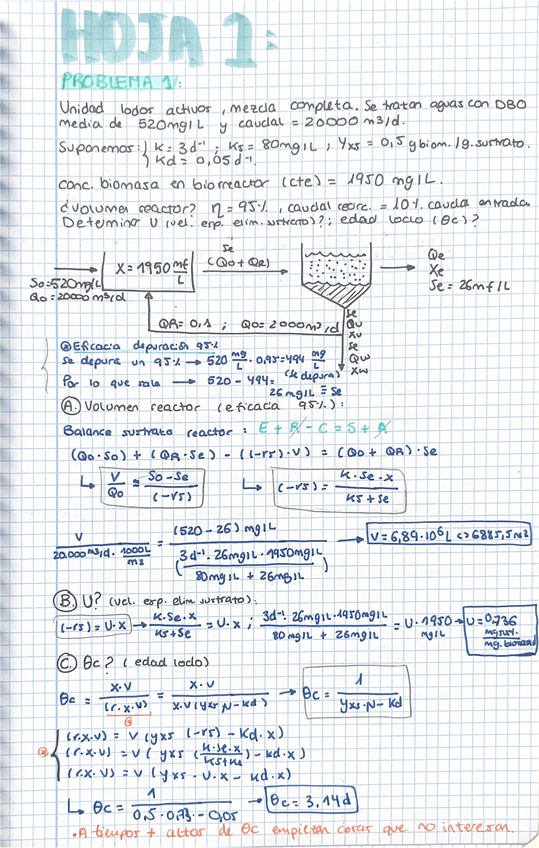 HOJA 1:
PROBLEMA 1:
Unidad lodos activos, mezcla completa. Se tratan aguas con DBO
media de 520mg/L y caudal = 20000 m3/d.
Suponemos: K = 3d⁻¹ ; Ks = 80mg/L , Yxs = 0,5 g biom./g.sustrato.
Kd = 0,05d⁻¹.
conc. biomasa en biorreactor (cte) = 1950 mg/L.
¿Volumen reactor? η = 95% , caudal recirc. = 10% caudal entrada
Determinar U (vel. esp. elim. sustrato)?; edad lodo (θc)?
So=520mg/L
Qo=20000m³/d
X=1950 mg/L
Se
(Qo+QR)
Qe
Xe
Se = 26mg/L
QR=0,1 ; Qo=2000m³/d
Se
Qu
Xu
Se
Qw
Xw
Eficacia depuración 95%
Se depura un 95% → 520 mg/L · 0,95=494 mg/L
(se depura)
Por lo que sale → 520 - 494=
26mg/L = Se
A. Volumen reactor (eficacia 95%):
Balance sustrato reactor: E + R - C = S + A
(Qo·So) + (QR·Se) - ((-rs)·V) = (Qo + QR)·Se
↳ V/Qo = So-Se/(-rs) ↳ (-rs) = K·Se·X/Ks+Se
V/20.000m³/d · 1000L/m3 = (520-26) mg/L / (3d⁻¹·26mg/L·1950mg/L / 80mg/L + 26mg/L) → V=6,89·10⁶L <> 6885,5m3
B. U? (vel. esp. elim sustrato):
(-rs) = U·X → K·Se·X/Ks+Se = U·X ; 3d⁻¹·26mg/L·1950mg/L / 80mg/L + 26mg/L = U·1950 mg/L → U=0,736 mgsust./mg.biomasa
C. θc? (edad lodo)
θc = X·V/(r.x.v) = X·V/X·V(Yxs·N-Kd) → θc = 1/Yxs·N-Kd
(r.x.v) = V (Yxs (-rs) - Kd.x)
(r.x.v) = V (Yxs (K·Se·X/Ks+Se) - Kd.x)
(r.x.v) = V (Yxs·U·X - Kd.x)
↳ θc = 1/0,5·0,73-0,05 → θc=3,14d
·A tiempos + altos de θc empiezan cosas que no interesan.